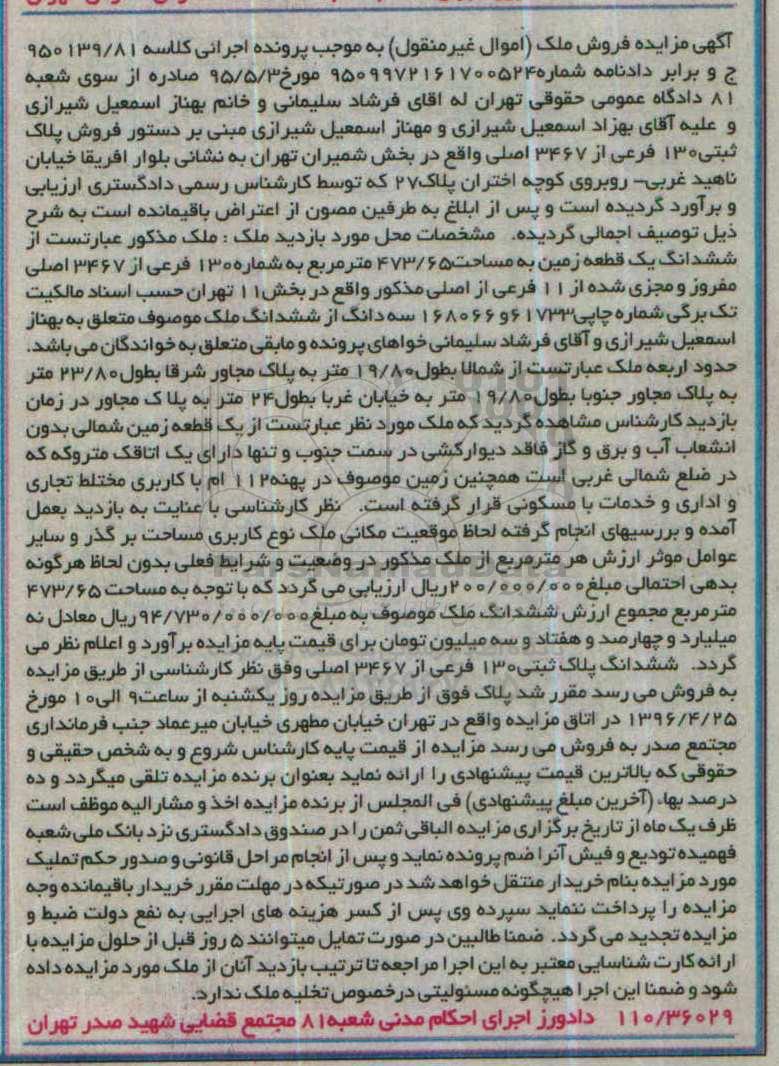 آگهی مزایده فروش ملک (اموال غیرمنقول) به موجب پرونده اجرائی کلاسه ۹۵۰۱۳۹/۸۱
ج و برابر دادنامه شماره۹۵۰۹۹۷۲۱۶۱۷۰۰۵۲۴ مورخ۹۵/۵/۳ صادره از سوی شعبه
۸۱ دادگاه عمومی حقوقی تهران له اقای فرشاد سلیمانی و خانم بهناز اسمعیل شیرازی
و علیه آقای بهزاد اسمعیل شیرازی و مهناز اسمعیل شیرازی مبنی بر دستور فروش پلاک
ثبتی۱۳۰ فرعی از ۳۴۶۷ اصلی واقع در بخش شمیران تهران به نشانی بلوار افریقا خیابان
ناهید غربی– روبروی کوچه اختران پلاک۲۷ که توسط کارشناس رسمی دادگستری ارزیابی
و برآورد گردیده است و پس از ابلاغ به طرفین مصون از اعتراض باقیمانده است به شرح
ذیل توصیف اجمالی گردیده. مشخصات محل مورد بازدید ملک : ملک مذکور عبارتست از
ششدانگ یک قطعه زمین به مساحت۴۷۳/۶۵ مترمربع به شماره۱۳۰ فرعی از ۳۴۶۷ اصلی
مفروز و مجزی شده از ۱۱ فرعی از اصلی مذکور واقع در بخش۱۱ تهران حسب اسناد مالکیت
تک برگی شماره چاپی۶۱۷۳۳ و ۱۶۸۰۶۶ سه دانگ از ششدانگ ملک موصوف متعلق به بهناز
اسمعیل شیرازی و آقای فرشاد سلیمانی خواهای پرونده و مابقی متعلق به خواندگان می باشد.
حدود اربعه ملک عبارتست از شمالا بطول۱۹/۸۰ متر به پلاک مجاور شرقا بطول۲۳/۸۰ متر
به پلاک مجاور جنوبا بطول۱۹/۸۰ متر به خیابان غربا بطول۲۴ متر به پلا ک مجاور در زمان
بازدید کارشناس مشاهده گردید که ملک مورد نظر عبارتست از یک قطعه زمین شمالی بدون
انشعاب آب و برق و گاز فاقد دیوارکشی در سمت جنوب و تنها دارای یک اتاقک متروکه که
در ضلع شمالی غربی است همچنین زمین موصوف در پهنه۱۱۲ ام با کاربری مختلط تجاری
و اداری و خدمات با مسکونی قرار گرفته است. نظر کارشناسی با عنایت به بازدید بعمل
آمده و بررسیهای انجام گرفته لحاظ موقعیت مکانی ملک نوع کاربری مساحت بر گذر و سایر
عوامل موثر ارزش هر مترمربع از ملک مذکور در وضعیت و شرایط فعلی بدون لحاظ هرگونه
بدهی احتمالی مبلغ۲۰۰/۰۰۰/۰۰۰ریال ارزیابی می گردد که با توجه به مساحت ۴۷۳/۶۵
مترمربع مجموع ارزش ششدانگ ملک موصوف به مبلغ۹۴/۷۳۰/۰۰۰/۰۰۰ریال معادل نه
میلیارد و چهارصد و هفتاد و سه میلیون تومان برای قیمت پایه مزایده برآورد و اعلام نظر می
گردد. ششدانگ پلاک ثبتی۱۳۰ فرعی از ۳۴۶۷ اصلی وفق نظر کارشناسی از طریق مزایده
به فروش می رسد مقرر شد پلاک فوق از طریق مزایده روز یکشنبه از ساعت۹ الی۱۰ مورخ
۱۳۹۶/۴/۲۵ در اتاق مزایده واقع در تهران خیابان مطهری خیابان میرعماد جنب فرمانداری
مجتمع صدر به فروش می رسد مزایده از قیمت پایه کارشناس شروع و به شخص حقیقی و
حقوقی که بالاترین قیمت پیشنهادی را ارائه نماید بعنوان برنده مزایده تلقی میگردد و ده
درصد بهاء (آخرین مبلغ پیشنهادی) فی المجلس از برنده مزایده اخذ و مشارالیه موظف است
ظرف یک ماه از تاریخ برگزاری مزایده الباقی ثمن را در صندوق دادگستری نزد بانک ملی شعبه
فهمیده تودیع و فیش آنرا ضم پرونده نماید و پس از انجام مراحل قانونی و صدور حکم تملیک
مورد مزایده بنام خریدار منتقل خواهد شد در صورتیکه در مهلت مقرر خریدار باقیمانده وجه
مزایده را پرداخت ننماید سپرده وی پس از کسر هزینه های اجرایی به نفع دولت ضبط و
مزایده تجدید می گردد. ضمنا طالبین در صورت تمایل میتوانند ۵ روز قبل از حلول مزایده با
ارائه کارت شناسایی معتبر به این اجرا مراجعه تا ترتیب بازدید آنان از ملک مورد مزایده داده
شود و ضمنا این اجرا هیچگونه مسئولیتی درخصوص تخلیه ملک ندارد.
۱۱۰/۳۶۰۲۹ دادورز اجرای احکام مدنی شعبه۸۱ مجتمع قضایی شهید صدر تهران